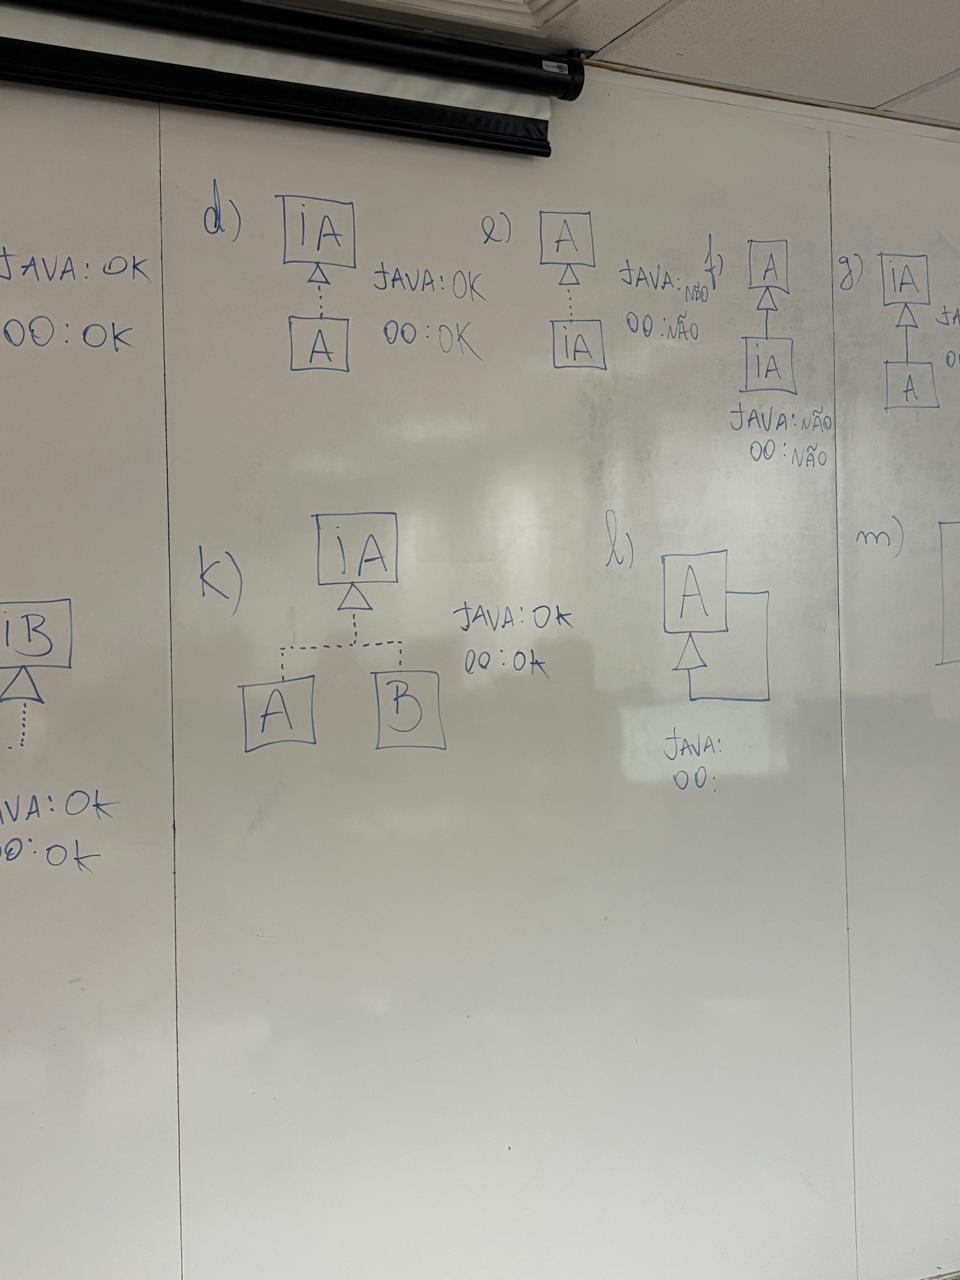 JAVA: OK
OO: OK
d)
iA
A
JAVA: OK
OO: OK
e)
A
iA
JAVA: NÃO
OO: NÃO
f)
A
iA
JAVA: NÃO
OO: NÃO
g)
iA
A
JA
O
iB
VA: OK
O: OK
k)
iA
A
B
JAVA: OK
OO: OK
l)
A
JAVA:
OO:
m)